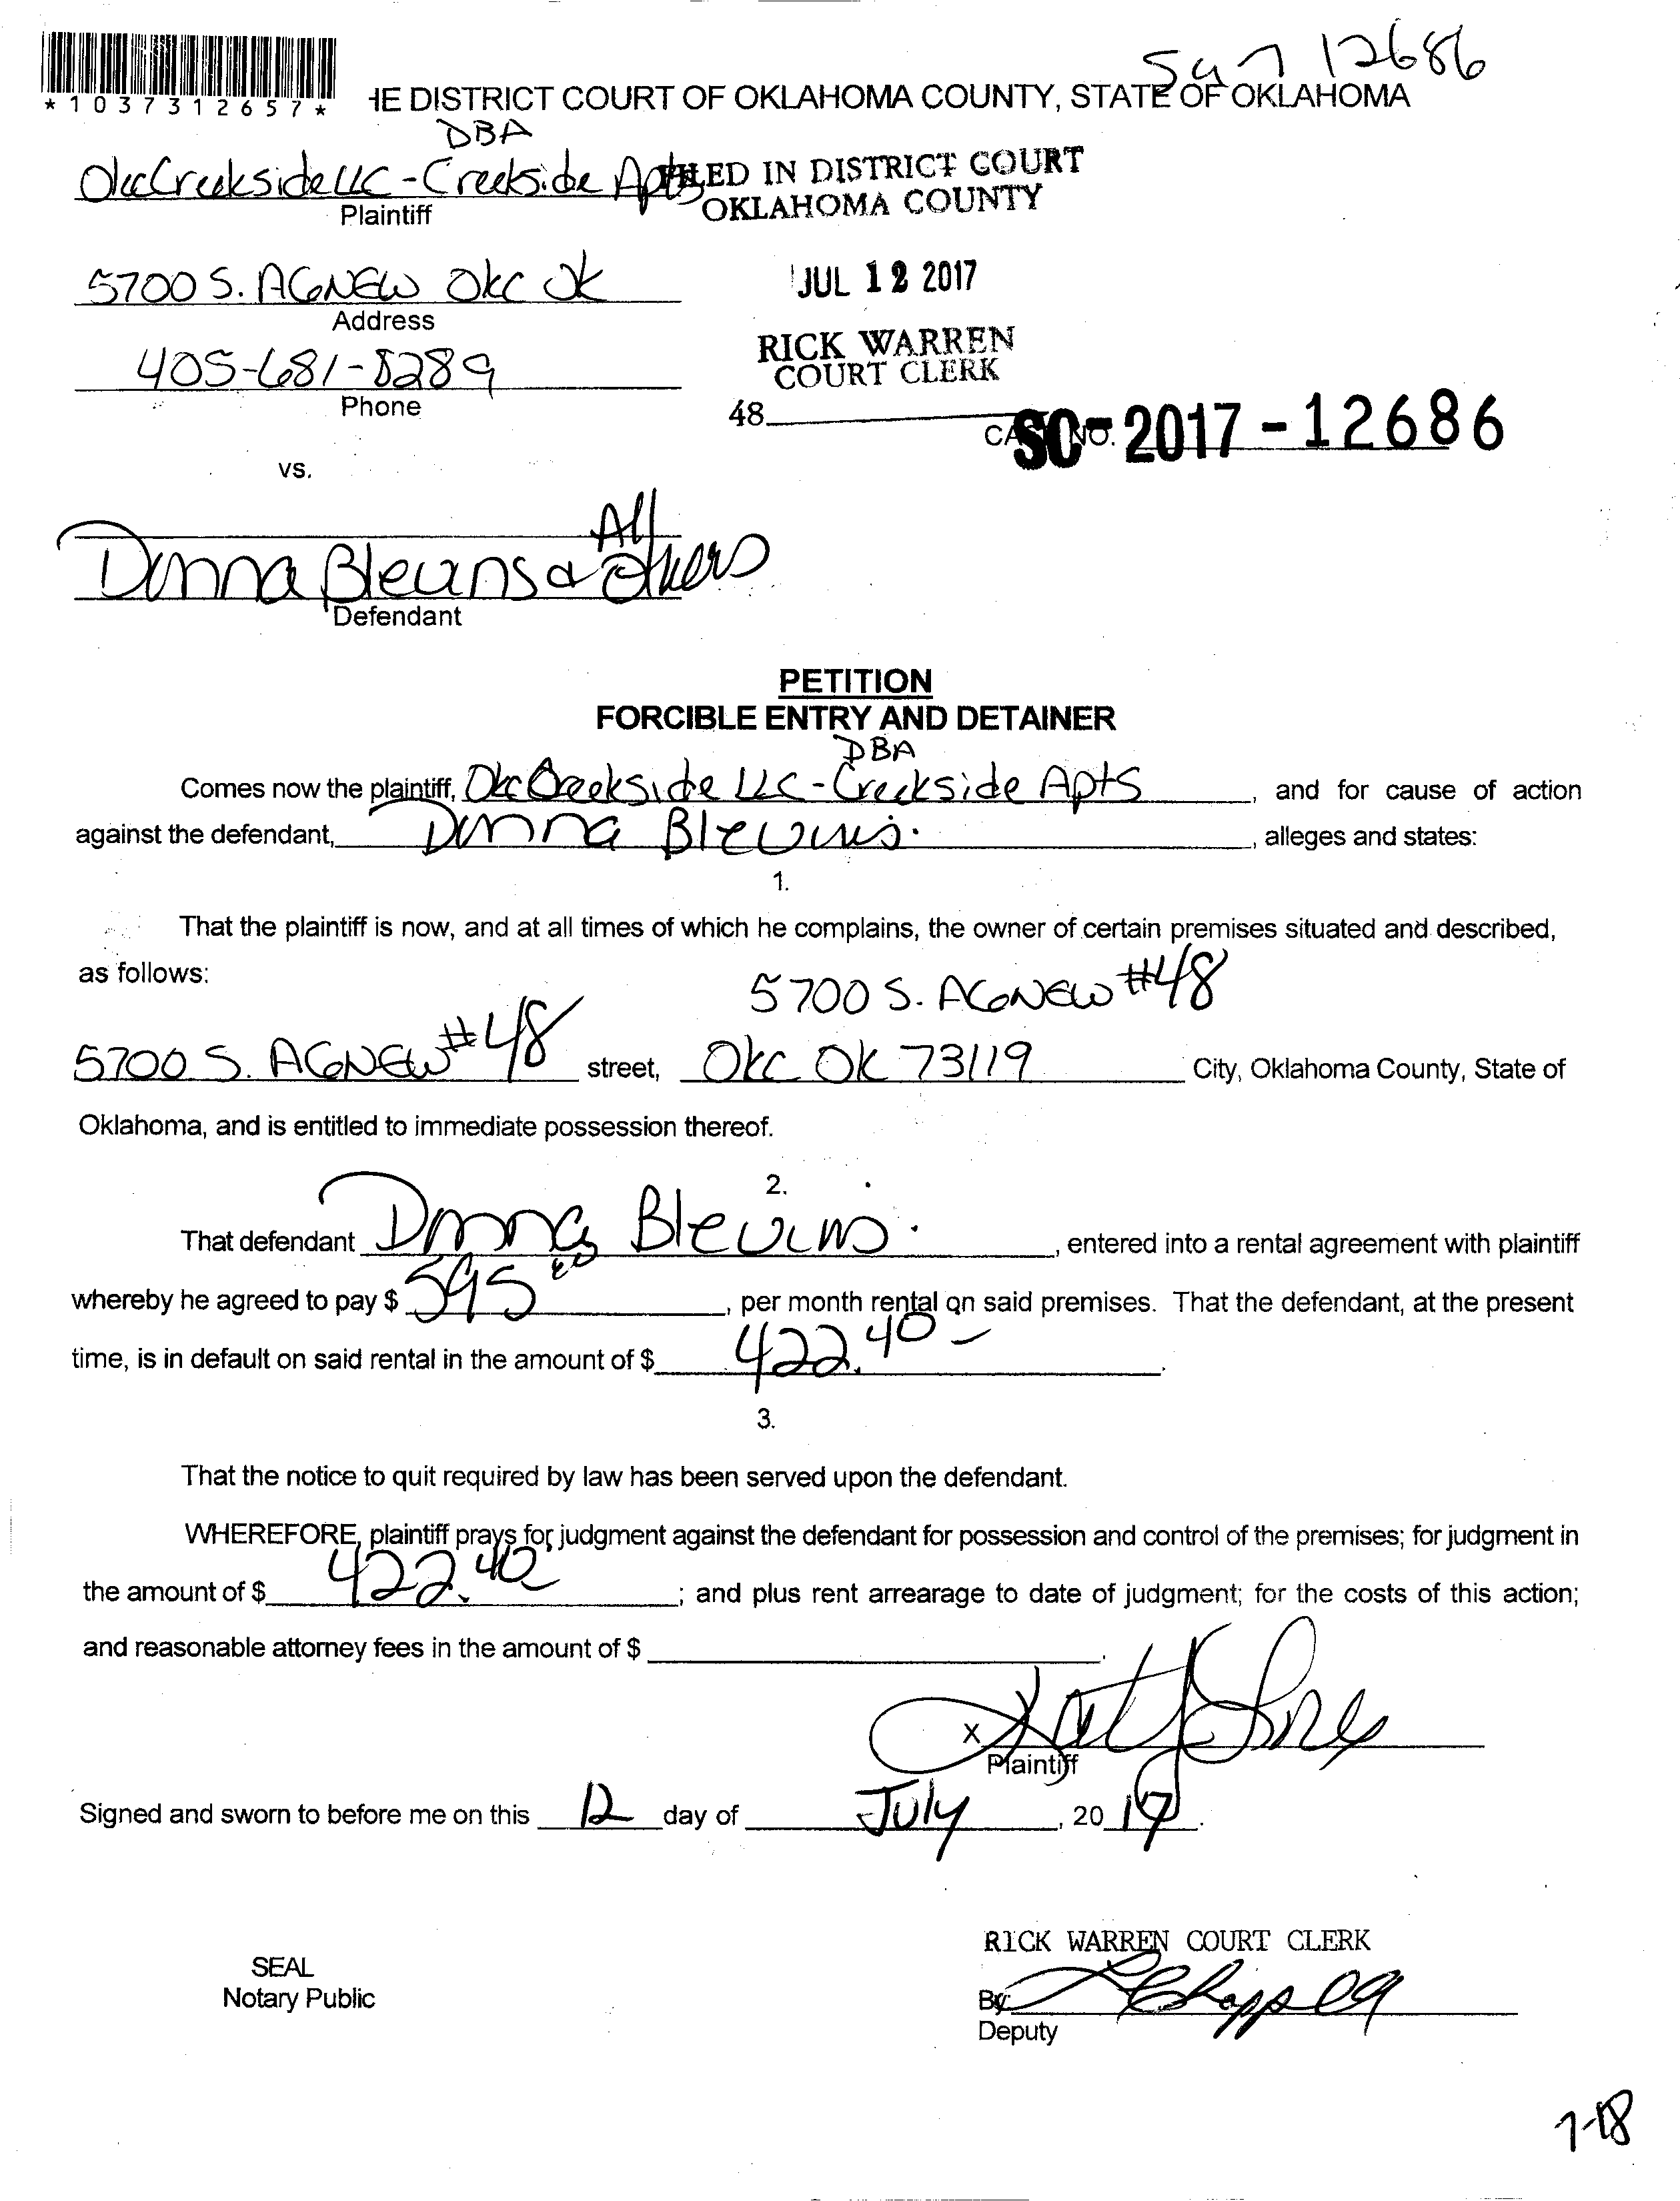 12686
*1037312657*
HE DISTRICT COURT OF OKLAHOMA COUNTY, STATE OF OKLAHOMA
DBA
Okc Creekside LLC - Creekside Apts
FILED IN DISTRICT COURT
OKLAHOMA COUNTY
Plaintiff
5700 S. AGNEW OKC OK
JUL 12 2017
Address
RICK WARREN
COURT CLERK
405-681-8289
Phone
48
CASE NO.
SC-2017-12686
vs.
All
Donna Blevins & Others
Defendant
PETITION
FORCIBLE ENTRY AND DETAINER
DBA
Comes now the plaintiff, Okc Creekside LLC - Creekside Apts, and for cause of action
against the defendant, Donna Blevins, alleges and states:
1.
That the plaintiff is now, and at all times of which he complains, the owner of certain premises situated and described,
as follows:
5700 S. AGNEW #48
5700 S. AGNEW #48 street, OKC OK 73119 City, Oklahoma County, State of
Oklahoma, and is entitled to immediate possession thereof.
2.
That defendant Donna Blevins, entered into a rental agreement with plaintiff
whereby he agreed to pay $ 595 00, per month rental on said premises. That the defendant, at the present
time, is in default on said rental in the amount of $ 422.40.
3.
That the notice to quit required by law has been served upon the defendant.
WHEREFORE, plaintiff prays for judgment against the defendant for possession and control of the premises; for judgment in
the amount of $ 422.40; and plus rent arrearage to date of judgment; for the costs of this action;
and reasonable attorney fees in the amount of $
X
Plaintiff
Signed and sworn to before me on this 12 day of July, 2017.
RICK WARREN COURT CLERK
SEAL
Notary Public
By:
Deputy
7-18